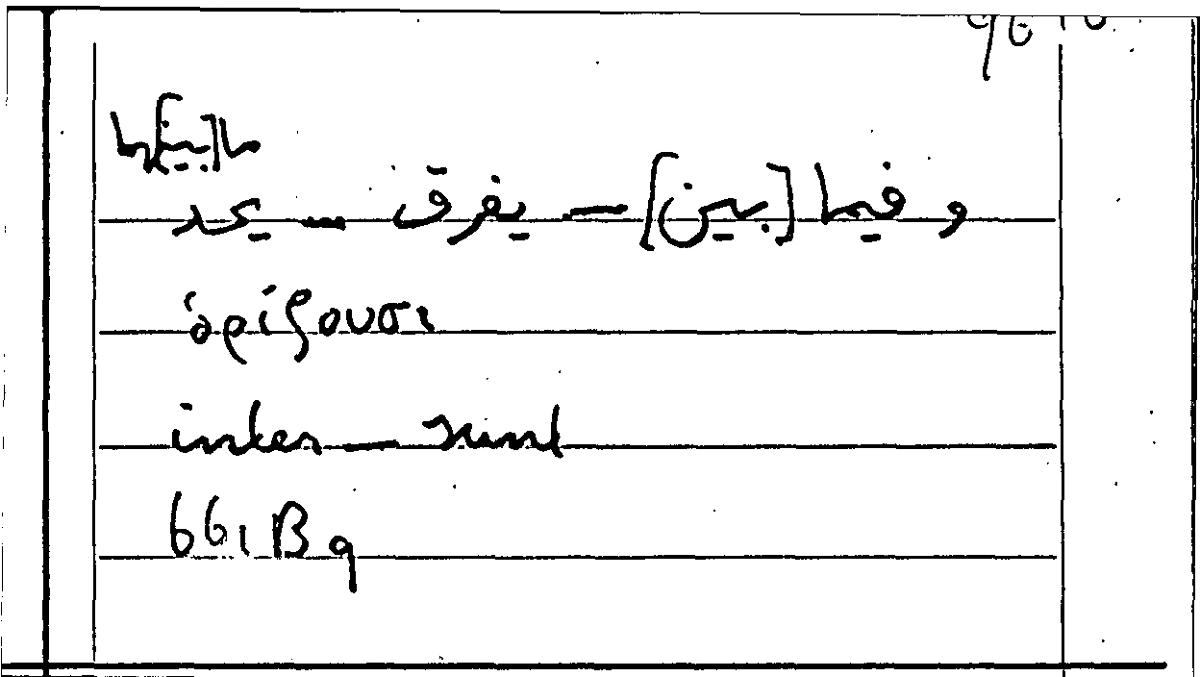 ما [بين] ها
وفيما [بين] – يفرق – يحد
ὁρίζουσι
inter – sunt
661 B 9